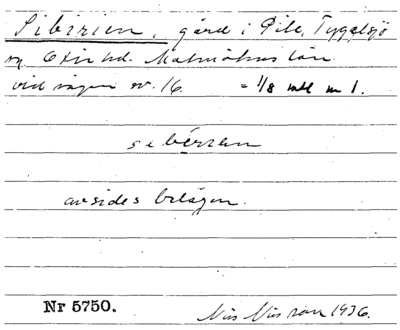 Siberien, gård i Pile, Tygelsjö
sn, Oxie hd. Malmöhus län.
vid vägen nr. 16. = 1/8 mtl nr 1.
sibérian
avsides belägen.
Nr 5750.
Nils Nilsson 1936.